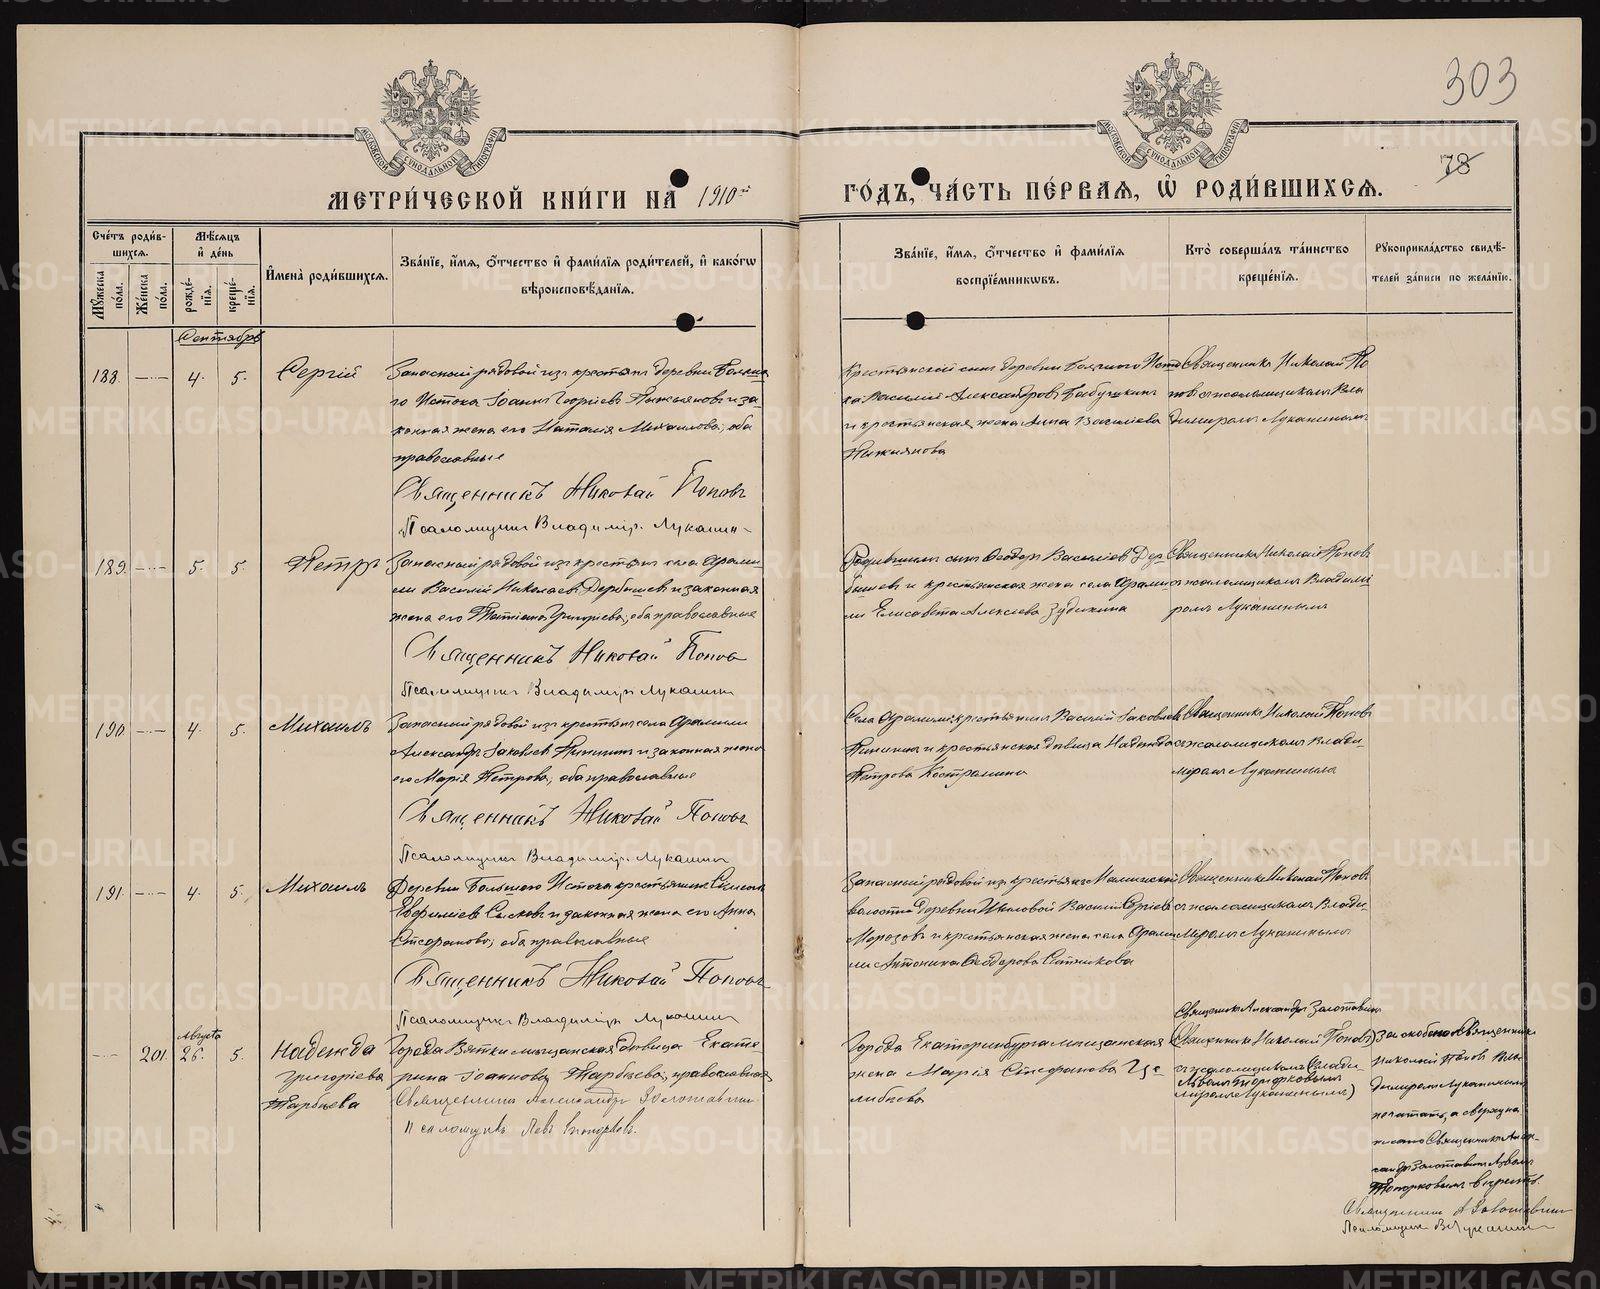 303
78
МЕТРИ́ЧЕСКОЙ КНИ́ГИ НА́ 1910й
ГО́ДЪ, ЧА́СТЬ ПЕ́РВАЯ, Ѡ҆ РОДИ́ВШИХСЯ.
Сче́тъ роди́в-
шихся.
Мѣ́сяцъ
и҆ де́нь
Му́жеска по́ла.
Же́нска по́ла.
рожде́-нїя.
креще́-нїя.
И҆мена̀ роди́вшихся.
Зва́нїе, и҆́мя, ѻ҆́тчество и҆ фами́лїя роди́телей, и҆ како́гѡ
вѣроисповѣ́данїя.
Зва́нїе, и҆́мя, ѻ҆́тчество и҆ фами́лїя
воспрїе́мникѡвъ.
Кто̀ соверша́лъ та́инство
креще́нїя.
Рꙋкоприкла́дство свидѣ́-
телей за́писи по жела́нїю.
Сентябрь
188. 4. 5. Сергій
Запасный рядовой изъ крестьянъ деревни Больша
го Истока Іоаннъ Георгіевъ и за
конная жена его Наталія Михаилова, оба
православные
Священникъ Николай Поповъ
Псаломщикъ Владиміръ Лукашинъ
Крестьянскій сынъ деревни Большого Исто
ка Василій Александровъ Бабушкинъ
и крестьянская жена Анна Василіева
Священникъ Николай По
повъ съ псаломщикомъ Вла
димиромъ Лукашинымъ
189. 5. 5. Петръ
Запасный рядовой изъ крестьянъ села Арами
ли Василій Николаевъ Дербышевъ и законная
жена его Татіана Григоріева, оба православные
Священникъ Николай Поповъ
Псаломщикъ Владиміръ Лукашинъ
сынъ Ѳеодоръ Василіевъ Дер
бышевъ и крестьянская жена села Арами
ли Елисавета Алексіева
Священникъ Николай Поповъ
съ псаломщикомъ Владими
ромъ Лукашинымъ
190. 4. 5. Михаилъ
Запасный рядовой изъ крестьянъ села Арамили
Александръ Іаковлевъ и законная жена
его Марія Петрова, оба православные
Священникъ Николай Поповъ
Псаломщикъ Владиміръ Лукашинъ
Села Арамили крестьянинъ Василій Іаковлевъ
и крестьянская дѣвица Надежда
Петрова Костромина
Священникъ Николай Поповъ
съ псаломщикомъ Влади-
міромъ Лукашинымъ
191. 4. 5. Михаилъ
Деревни Большого Истока крестьянинъ
Евфиміевъ и законная жена его Анна
Стефанова, оба православные
Священникъ Николай Поповъ
Псаломщикъ Владиміръ Лукашинъ
Запасный рядовой изъ крестьянъ
волости деревни Василій Сергіевъ
Морозовъ и крестьянская жена села Арами
ли Антонина Ѳеодорова Ситникова
Священникъ Николай Поповъ
съ псаломщикомъ Влади-
міромъ Лукашинымъ
Августа
201. 26. 5. Надежда
Григоріева
Тарбѣева
Города Вятки мѣщанская дѣвица Екате-
рина Іоаннова Тарбѣева, православная
Священникъ Александръ Золотавинъ
Псаломщикъ Левъ
Города Екатеринбурга мѣщанская
жена Марія Стефанова
Священникъ Александръ Золотавинъ
(Священникъ Николай Поповъ)
съ псаломщикомъ Влади-
Львомъ Топорковымъ
міромъ Лукашинымъ)
За скобено Священникъ
Николай Поповъ Вла-
димиромъ Лукашинымъ
а сверху на-
писано Священникъ Алек-
сандръ Золотавинъ Львомъ
Топорковымъ вѣрить.
Священникъ А Золотавинъ
Псаломщикъ В Лукашинъ
METRIKI.GASO-URAL.RU